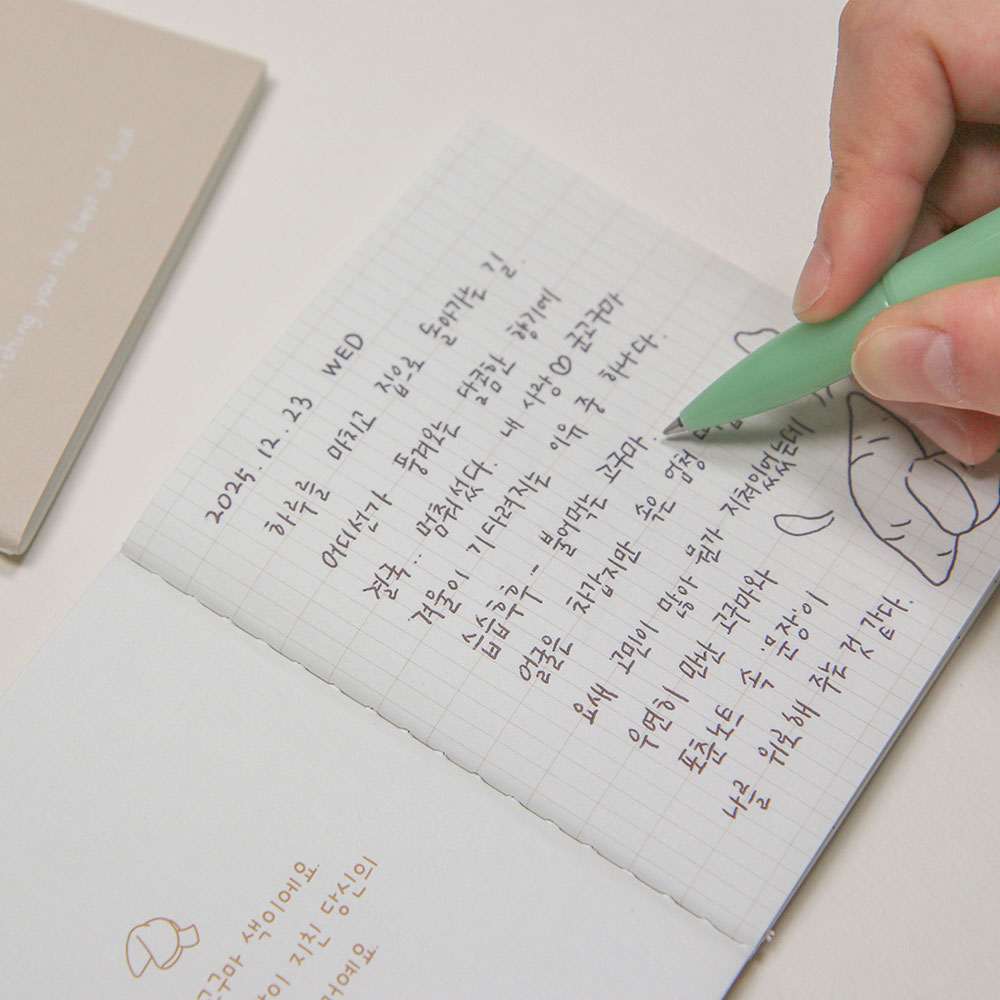 wishing you the best of luck
2025.12.23 WED
하루를 마치고 집으로 돌아가는 길.
어디선가 풍겨오는 달콤한 향기에
결국.. 멈춰섰다. 내 사랑♡ 군고구마
겨울이 기다려지는 이유 중 하나다.
습습후후.. 불어먹는 고구마.
얼굴은 차갑지만 속은 엄청
요새 고민이 많아 뭔가 지쳐있었는데
우연히 만난 고구마와
포춘노트 속 '문장'이
나를 위로해 주는 것 같다.
고구마 색이에요.
이 지친 당신의